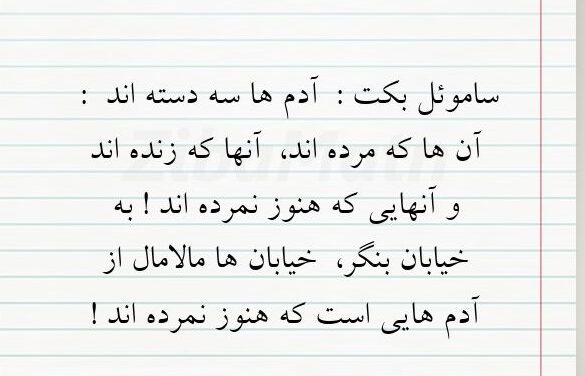 ساموئل بکت : آدم ها سه دسته اند :
آن ها که مرده اند، آنها که زنده اند
و آنهایی که هنوز نمرده اند ! به
خیابان بنگر، خیابان ها مالامال از
آدم هایی است که هنوز نمرده اند !